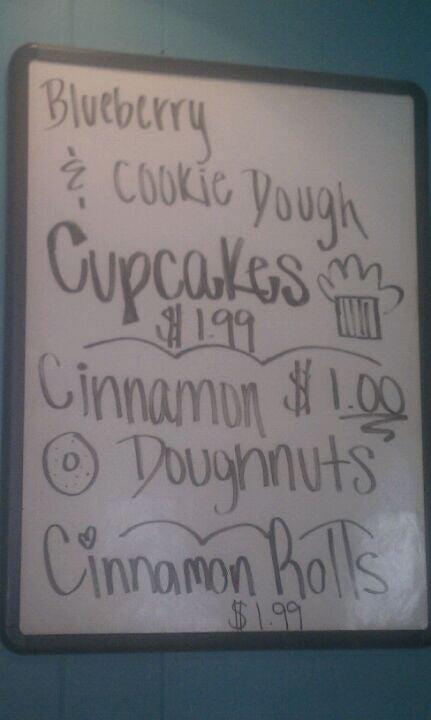 Blueberry
& Cookie Dough
Cupcakes
$1.99
Cinnamon $1.00
Doughnuts
Cinnamon Rolls
$1.99